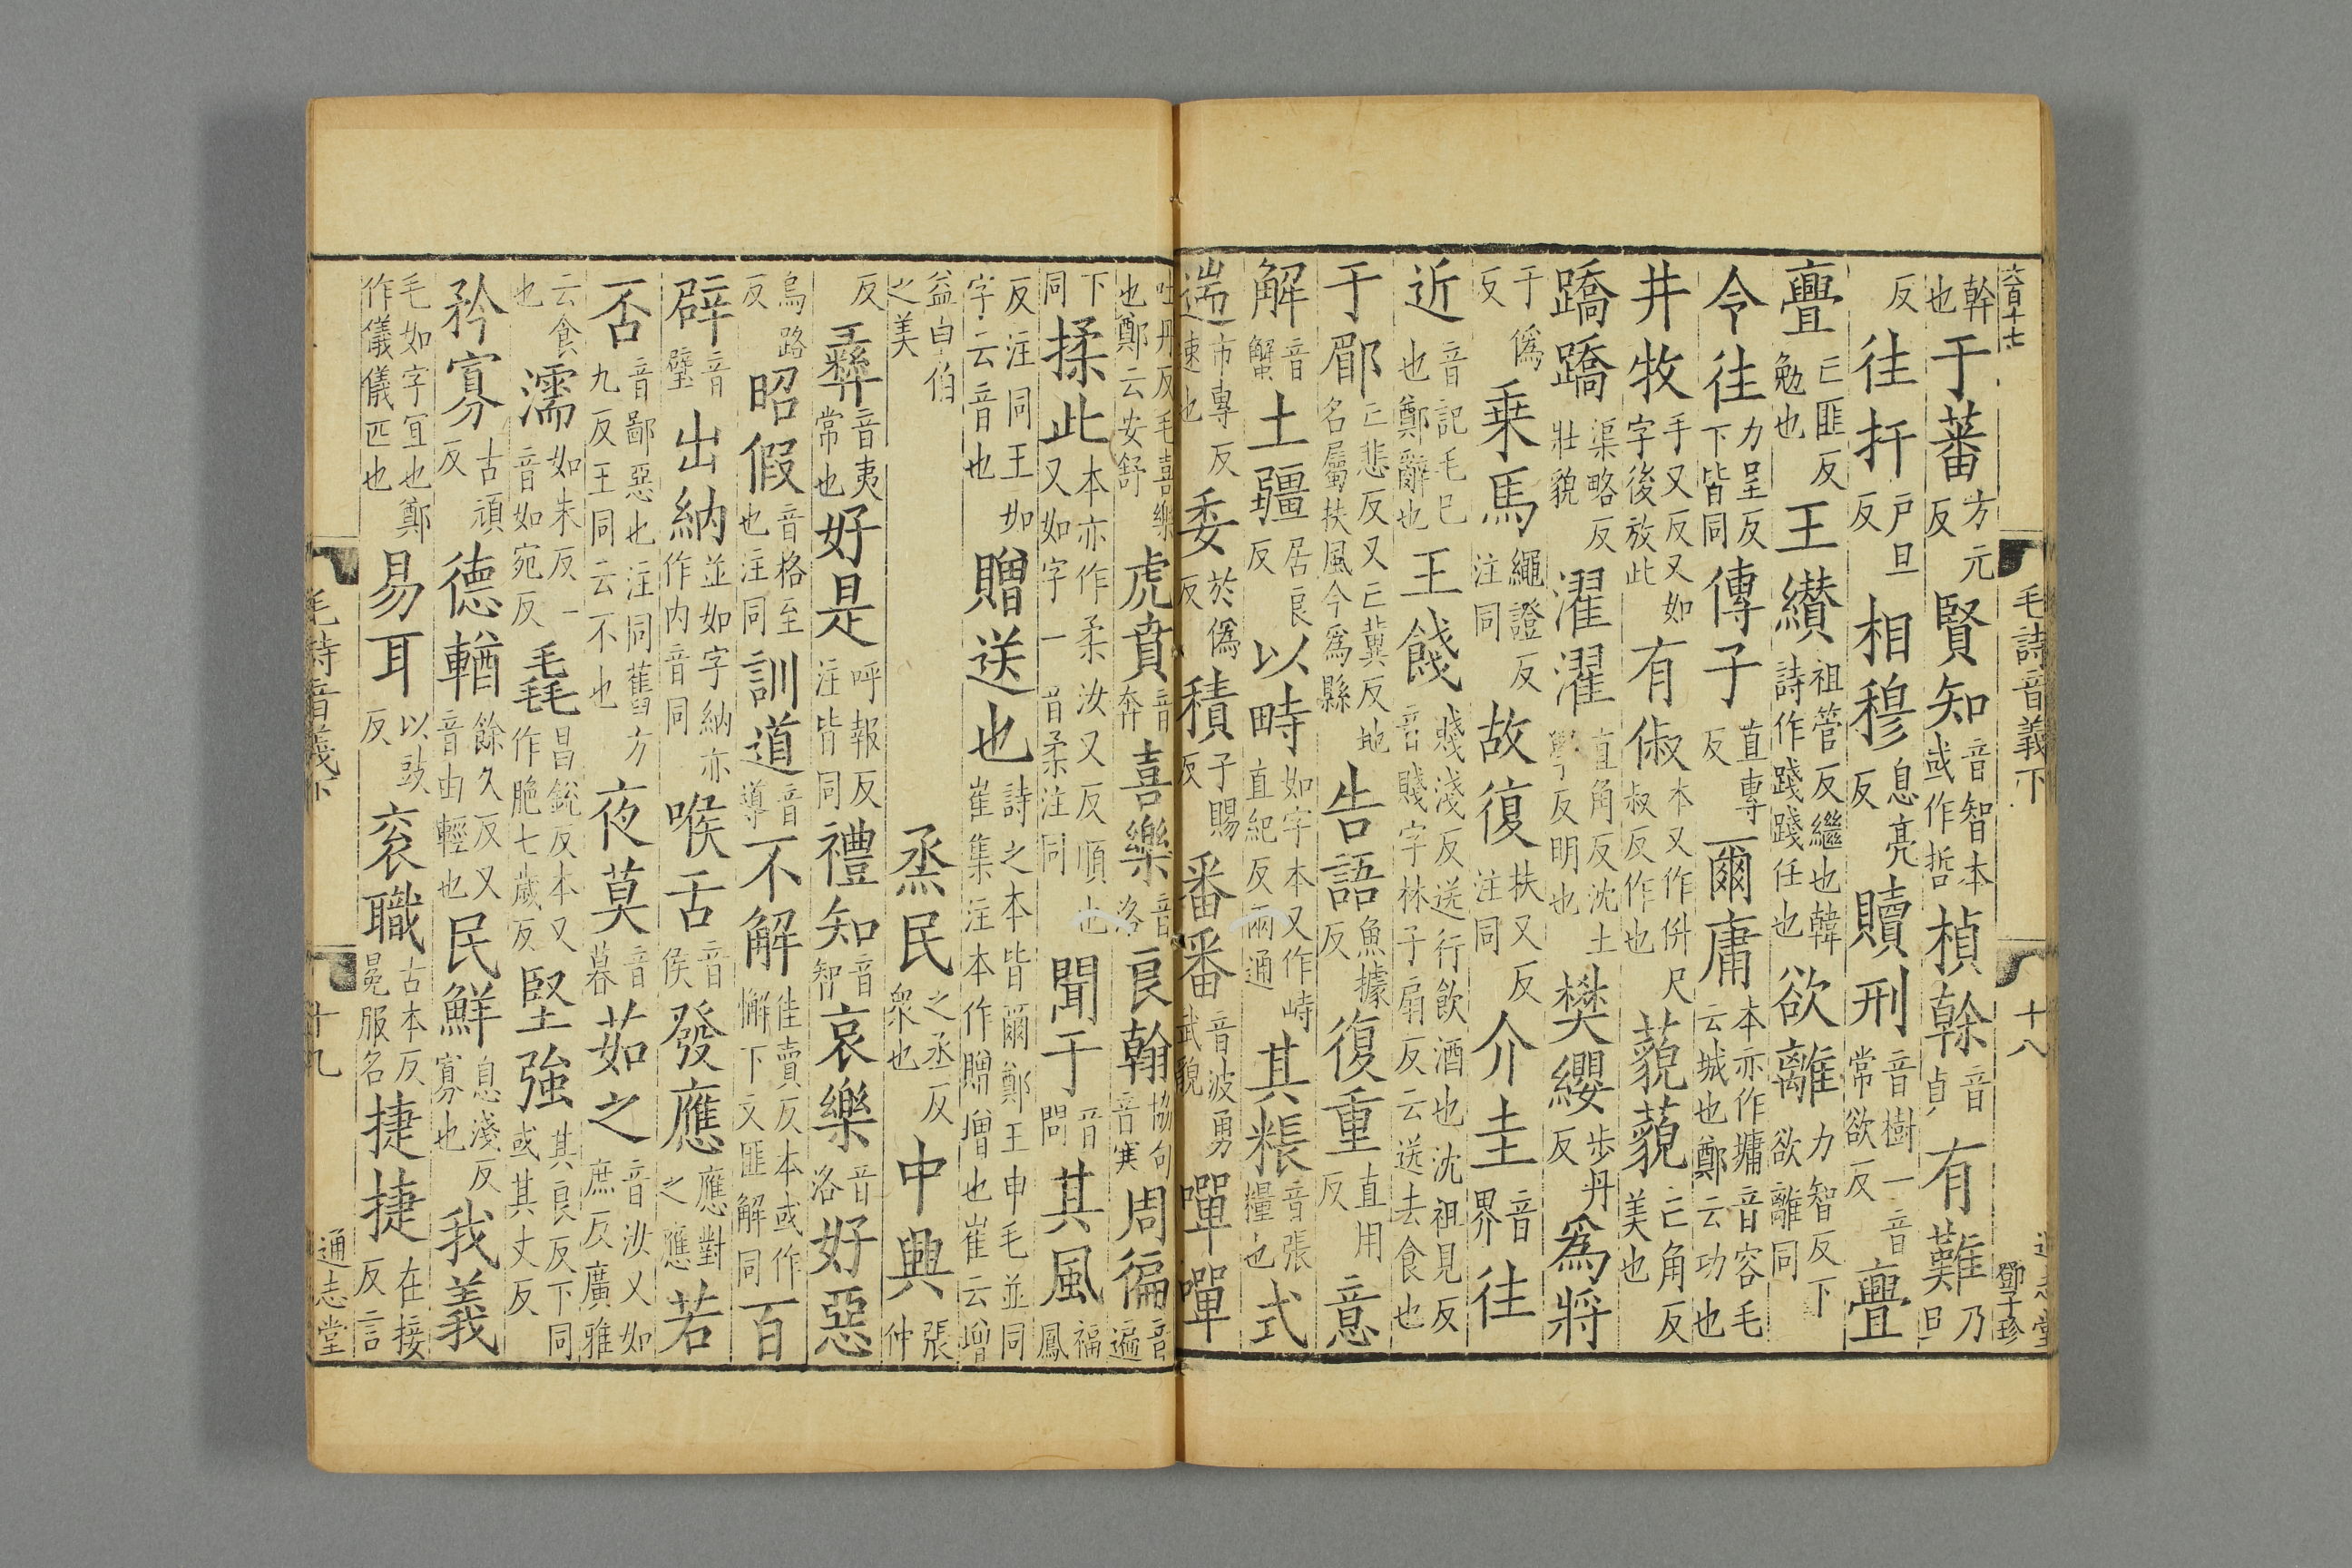 六百十七 毛詩音義下 十八 通志堂 鄧子珍
幹也于蕃方元反賢知音智本或作哲楨幹音貞有難乃旦
反往扞戶旦反相穆息亮反贖刑音樹一音常欲反亹
亹亡匪反勉也王纘祖管反繼也韓詩作踐踐任也欲離力智反下欲離同
令往力呈反下皆同傳子直專反爾庸本亦作墉音容毛云城也鄭云功也
井牧手又反又如字後放此有俶本又作併尺叔反作也藐藐亡角反美也
蹻蹻渠略反壯貌濯濯直角反沈土學反明也樊纓步丹反爲將
于僞反乗馬繩證反注同故復扶又反注同介圭音界往
近音記毛巳也鄭辭也王餞賤淺反送行飲酒也沈祖見反音賤字林子扇反云送去食也
于郿亡悲反又亡冀反地名屬扶風今爲縣告語魚據反復重直用反意
解音蟹土疆居良反以畤如字本又作峙直紀反兩通其粻音張糧也式
遄市專反速也委於僞反積子賜反番番音波勇武貌嘽嘽
吐丹反毛喜樂也鄭云安舒虎賁音奔喜樂音洛良翰協句音寒周徧音遍
下同揉此本亦作柔汝又反順也又如字一音柔注同聞于音問其風福鳳
反注同王如字云音也贈送也詩之本皆爾鄭王申毛並同崔集注本作贈增也崔云增
益白伯之美烝民之丞反衆也中興張仲
反彝音夷常也好是呼報反注皆同禮知音智哀樂音洛好惡
烏路反昭假音格至也注同訓道音導不解佳賣反本或作懈下文匪解同百
辟音璧出納並如字納亦作内音同喉舌音侯發應應對之應若
否音鄙惡也注同舊方九反王同云不也夜莫音暮茹之音汝又如庶反廣雅
云食也濡如朱反一音如宛反毳昌銳反本又作脆七歲反堅強其良反下同或其丈反
矜寡古頑反德輶餘久反又音由輕也民鮮息淺反寡也我義
毛如字宜也鄭作儀儀匹也易耳以豉反衮職古本反冕服名捷捷在接反言
毛詩音義下 十九 通志堂